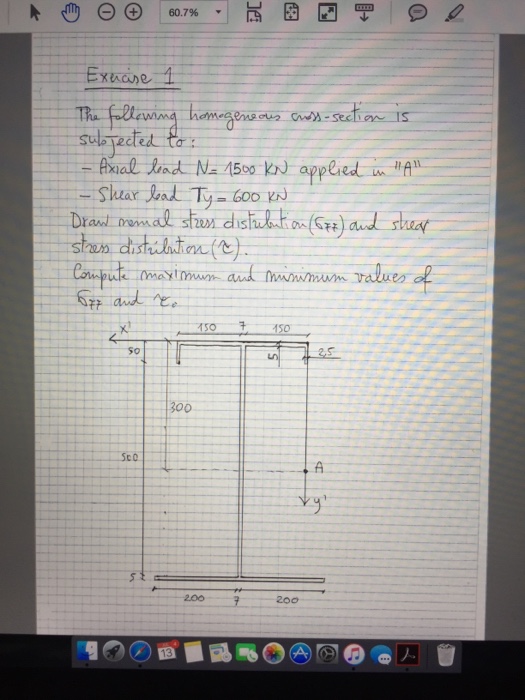 60.7%
Exercise 1
The following homogeneous cross-section is
subjected to:
- Axial load N= 1500 KN applied in "A"
- Shear load Ty = 600 KN
Draw normal stress distribution (σzz) and shear
stress distribution (τ).
Compute maximum and minimum values of
σzz and τ.
x'
150 7 150
50
5
2,5
300
500
A
y'
5
200 7 200
13